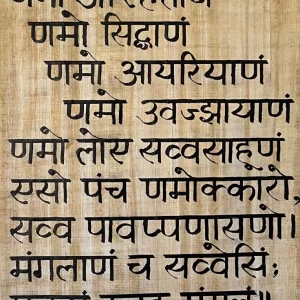 णमो सिद्धाणं
णमो आयरियाणं
णमो उवज्झायाणं
णमो लोए सव्वसाहूणं
एसो पंच णमोक्कारो,
सव्व पावप्पणासणो।
मंगलाणं च सव्वेसिं;